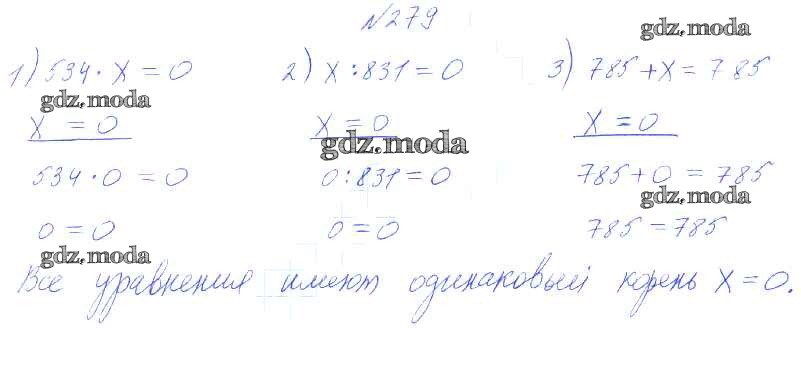 №279
gdz.moda
1) 534 · x = 0 2) x : 831 = 0 3) 785 + x = 785
gdz.moda
x = 0 x = 0 x = 0
gdz.moda
534 · 0 = 0 0 : 831 = 0 785 + 0 = 785
gdz.moda
0 = 0 0 = 0 785 = 785
gdz.moda
Все уравнения имеют одинаковый корень x = 0.